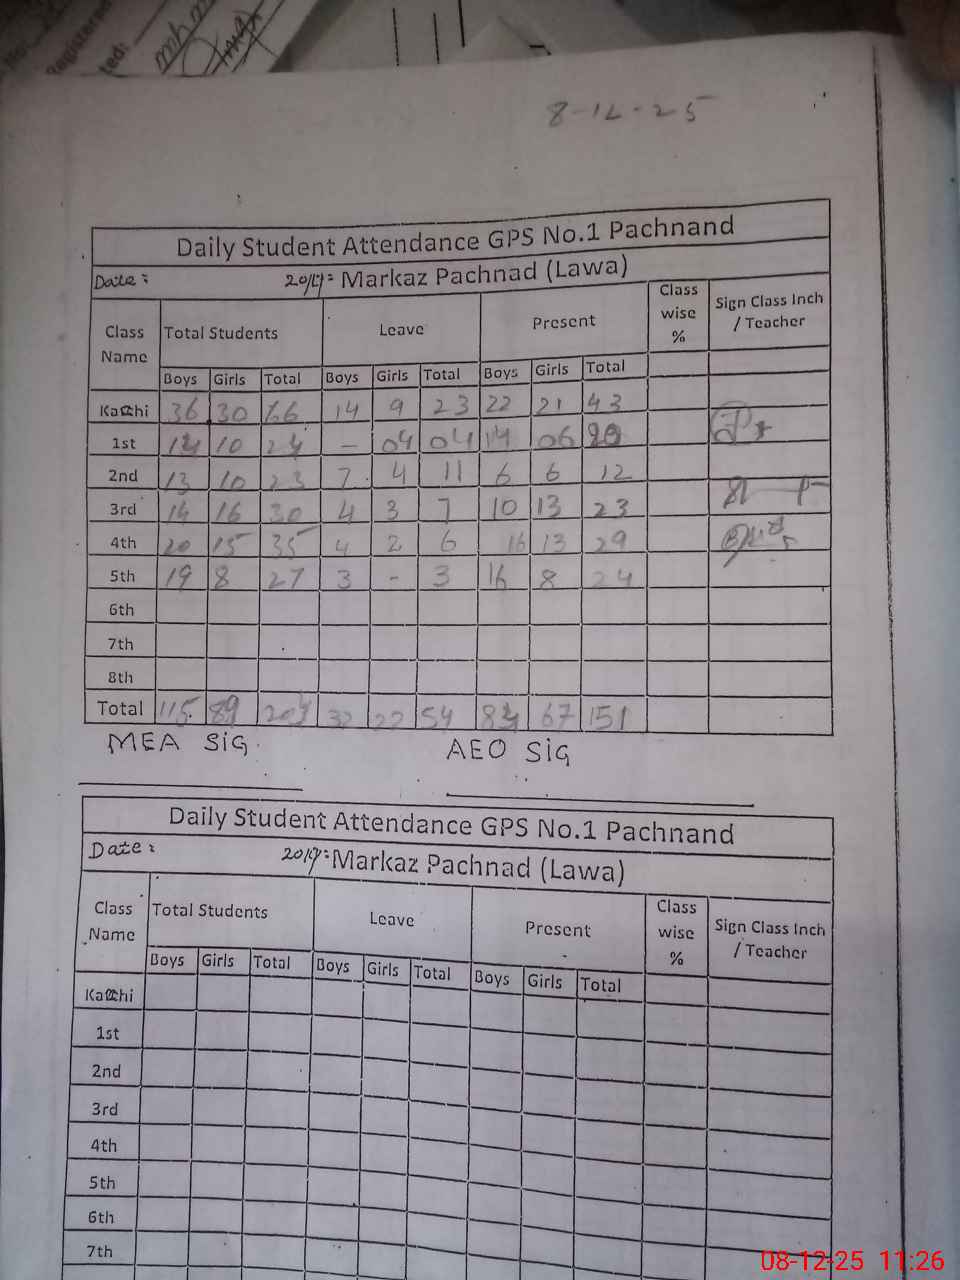 Registered
ted:
8-12-25
Daily Student Attendance GPS No.1 Pachnand
Date: Markaz Pachnad (Lawa)
Class Name Total Students Leave Present Class wise % Sign Class Inch / Teacher
Boys Girls Total Boys Girls Total Boys Girls Total
Kachi 36 30 66 14 9 23 22 21 43
1st 14 10 24 - 04 04 14 06 20
2nd 13 10 23 7 4 11 6 6 12
3rd 14 16 30 4 3 7 10 13 23
4th 20 15 35 4 2 6 16 13 29
5th 19 8 27 3 - 3 16 8 24
6th
7th
8th
Total 115 89 204 32 22 54 84 67 151
MEA SIG. AEO SIG
Daily Student Attendance GPS No.1 Pachnand
Date: Markaz Pachnad (Lawa)
Class Name Total Students Leave Present Class wise % Sign Class Inch / Teacher
Boys Girls Total Boys Girls Total Boys Girls Total
Kachi
1st
2nd
3rd
4th
5th
6th
7th
08-12-25 11:26